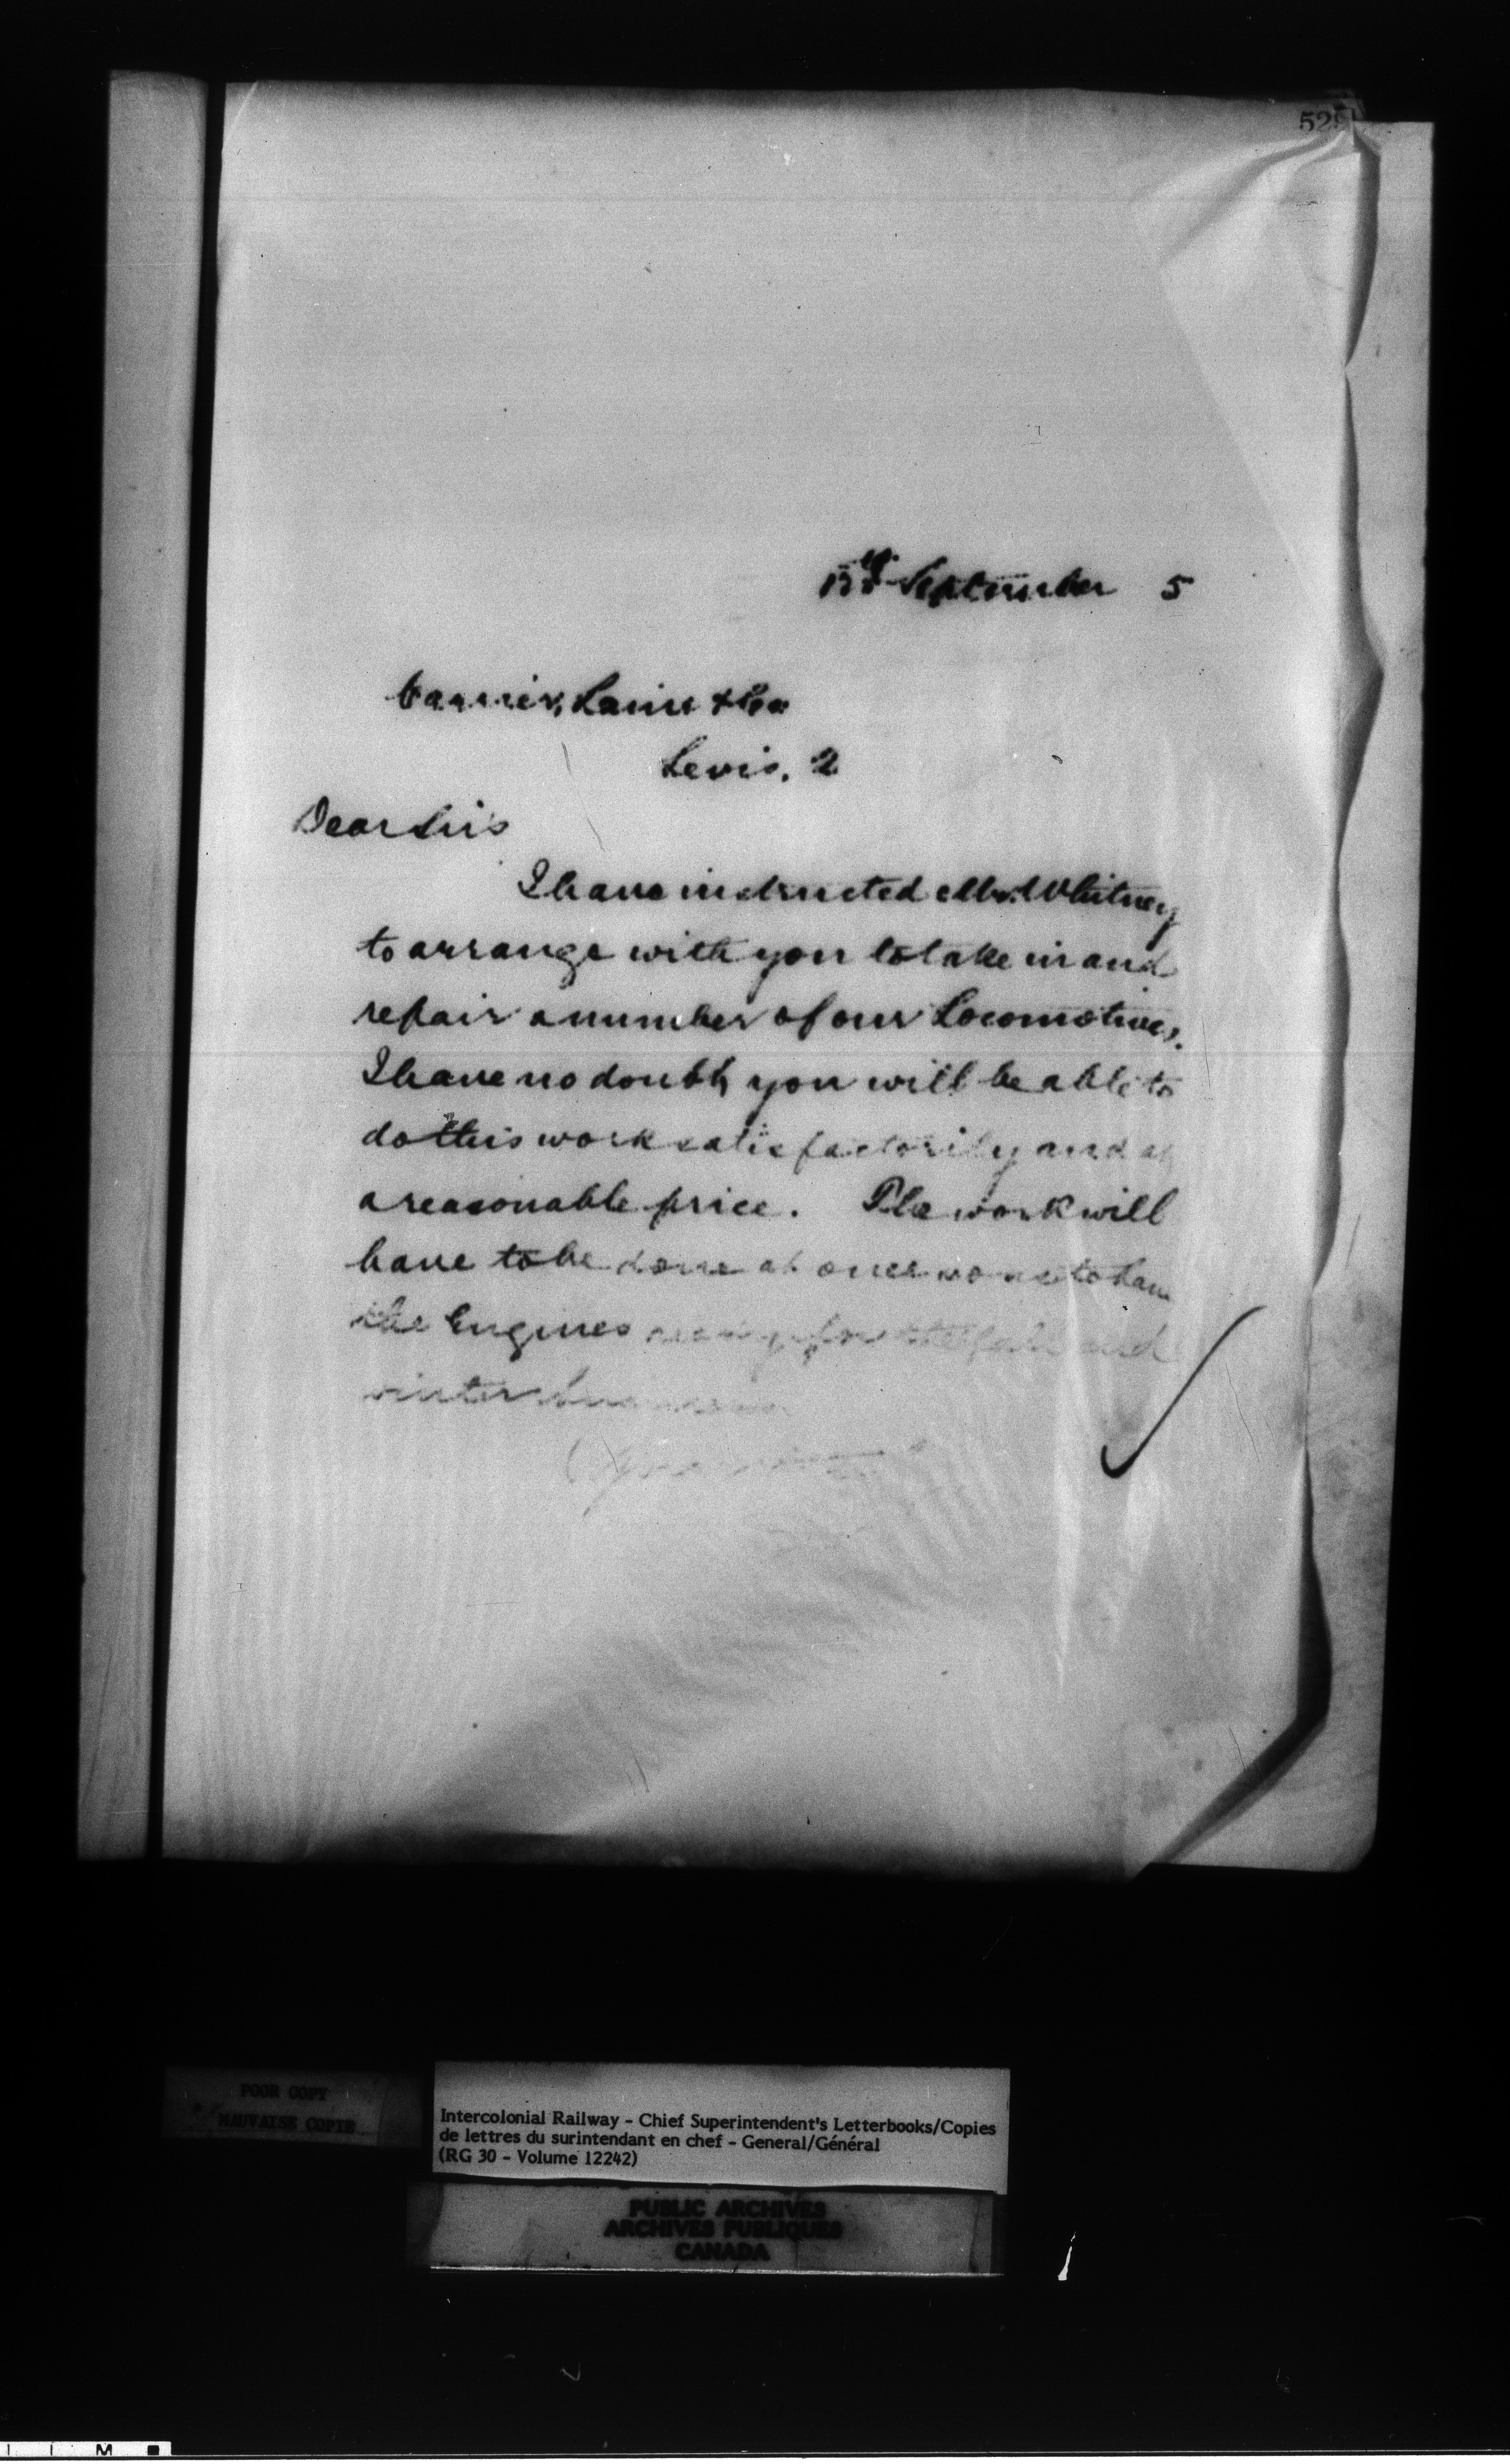 September 5
Carrier, Laine & Co
Levis, 2
Dear Sirs
I have instructed Mr. Whitney
to arrange with you to take in and
repair a number of our Locomotives.
I have no doubt you will be able to
do this work satisfactorily and at
a reasonable price. The work will
have to be done at once so as to have
the Engines ready for the fall and
winter business
POOR COPY
MAUVAISE COPIE
Intercolonial Railway - Chief Superintendent's Letterbooks/Copies
de lettres du surintendant en chef - General/Général
(RG 30 - Volume 12242)
PUBLIC ARCHIVES
ARCHIVES PUBLIQUES
CANADA
M